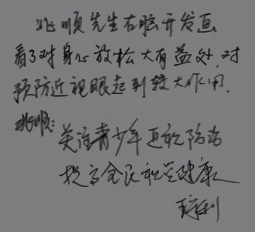 兆顺先生右脑开发画
看了对身心放松大有益处,对
预防近视眼起到较大作用.
兆顺:
关注青少年近视防治
提高全民视觉健康